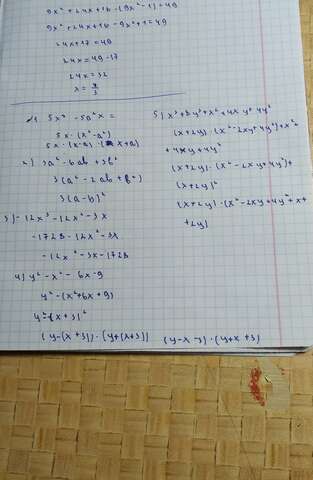 9x² + 24x + 16 - (9x² - 1) = 49
9x² + 24x + 16 - 9x² + 1 = 49
24x + 17 = 49
24x = 49 - 17
24x = 32
5x³ - 5a²x =
5x · (x² - a²)
5x · (x - a) · (x + a)
2) 3a² - 6ab + 3b²
3(a² - 2ab + b²)
3(a - b)²
3) - 12x³ - 12x² - 3x
- 1728 - 12x² - 3x
- 12x² - 3x - 1728
4) y² - x² - 6x - 9
y² - (x² + 6x + 9)
y² - (x + 3)²
(y - (x + 3)) · (y + (x + 3))
(y - x - 3) · (y + x + 3)
5) x³ + 8y³ + x² + 4xy + 4y²
(x + 2y) · (x² - 2xy + 4y²) + x² +
+ 4xy + 4y²
(x + 2y) · (x² - 2xy + 4y²) +
(x + 2y)²
(x + 2y) · (x² - 2xy + 4y² + x +
+ 2y)